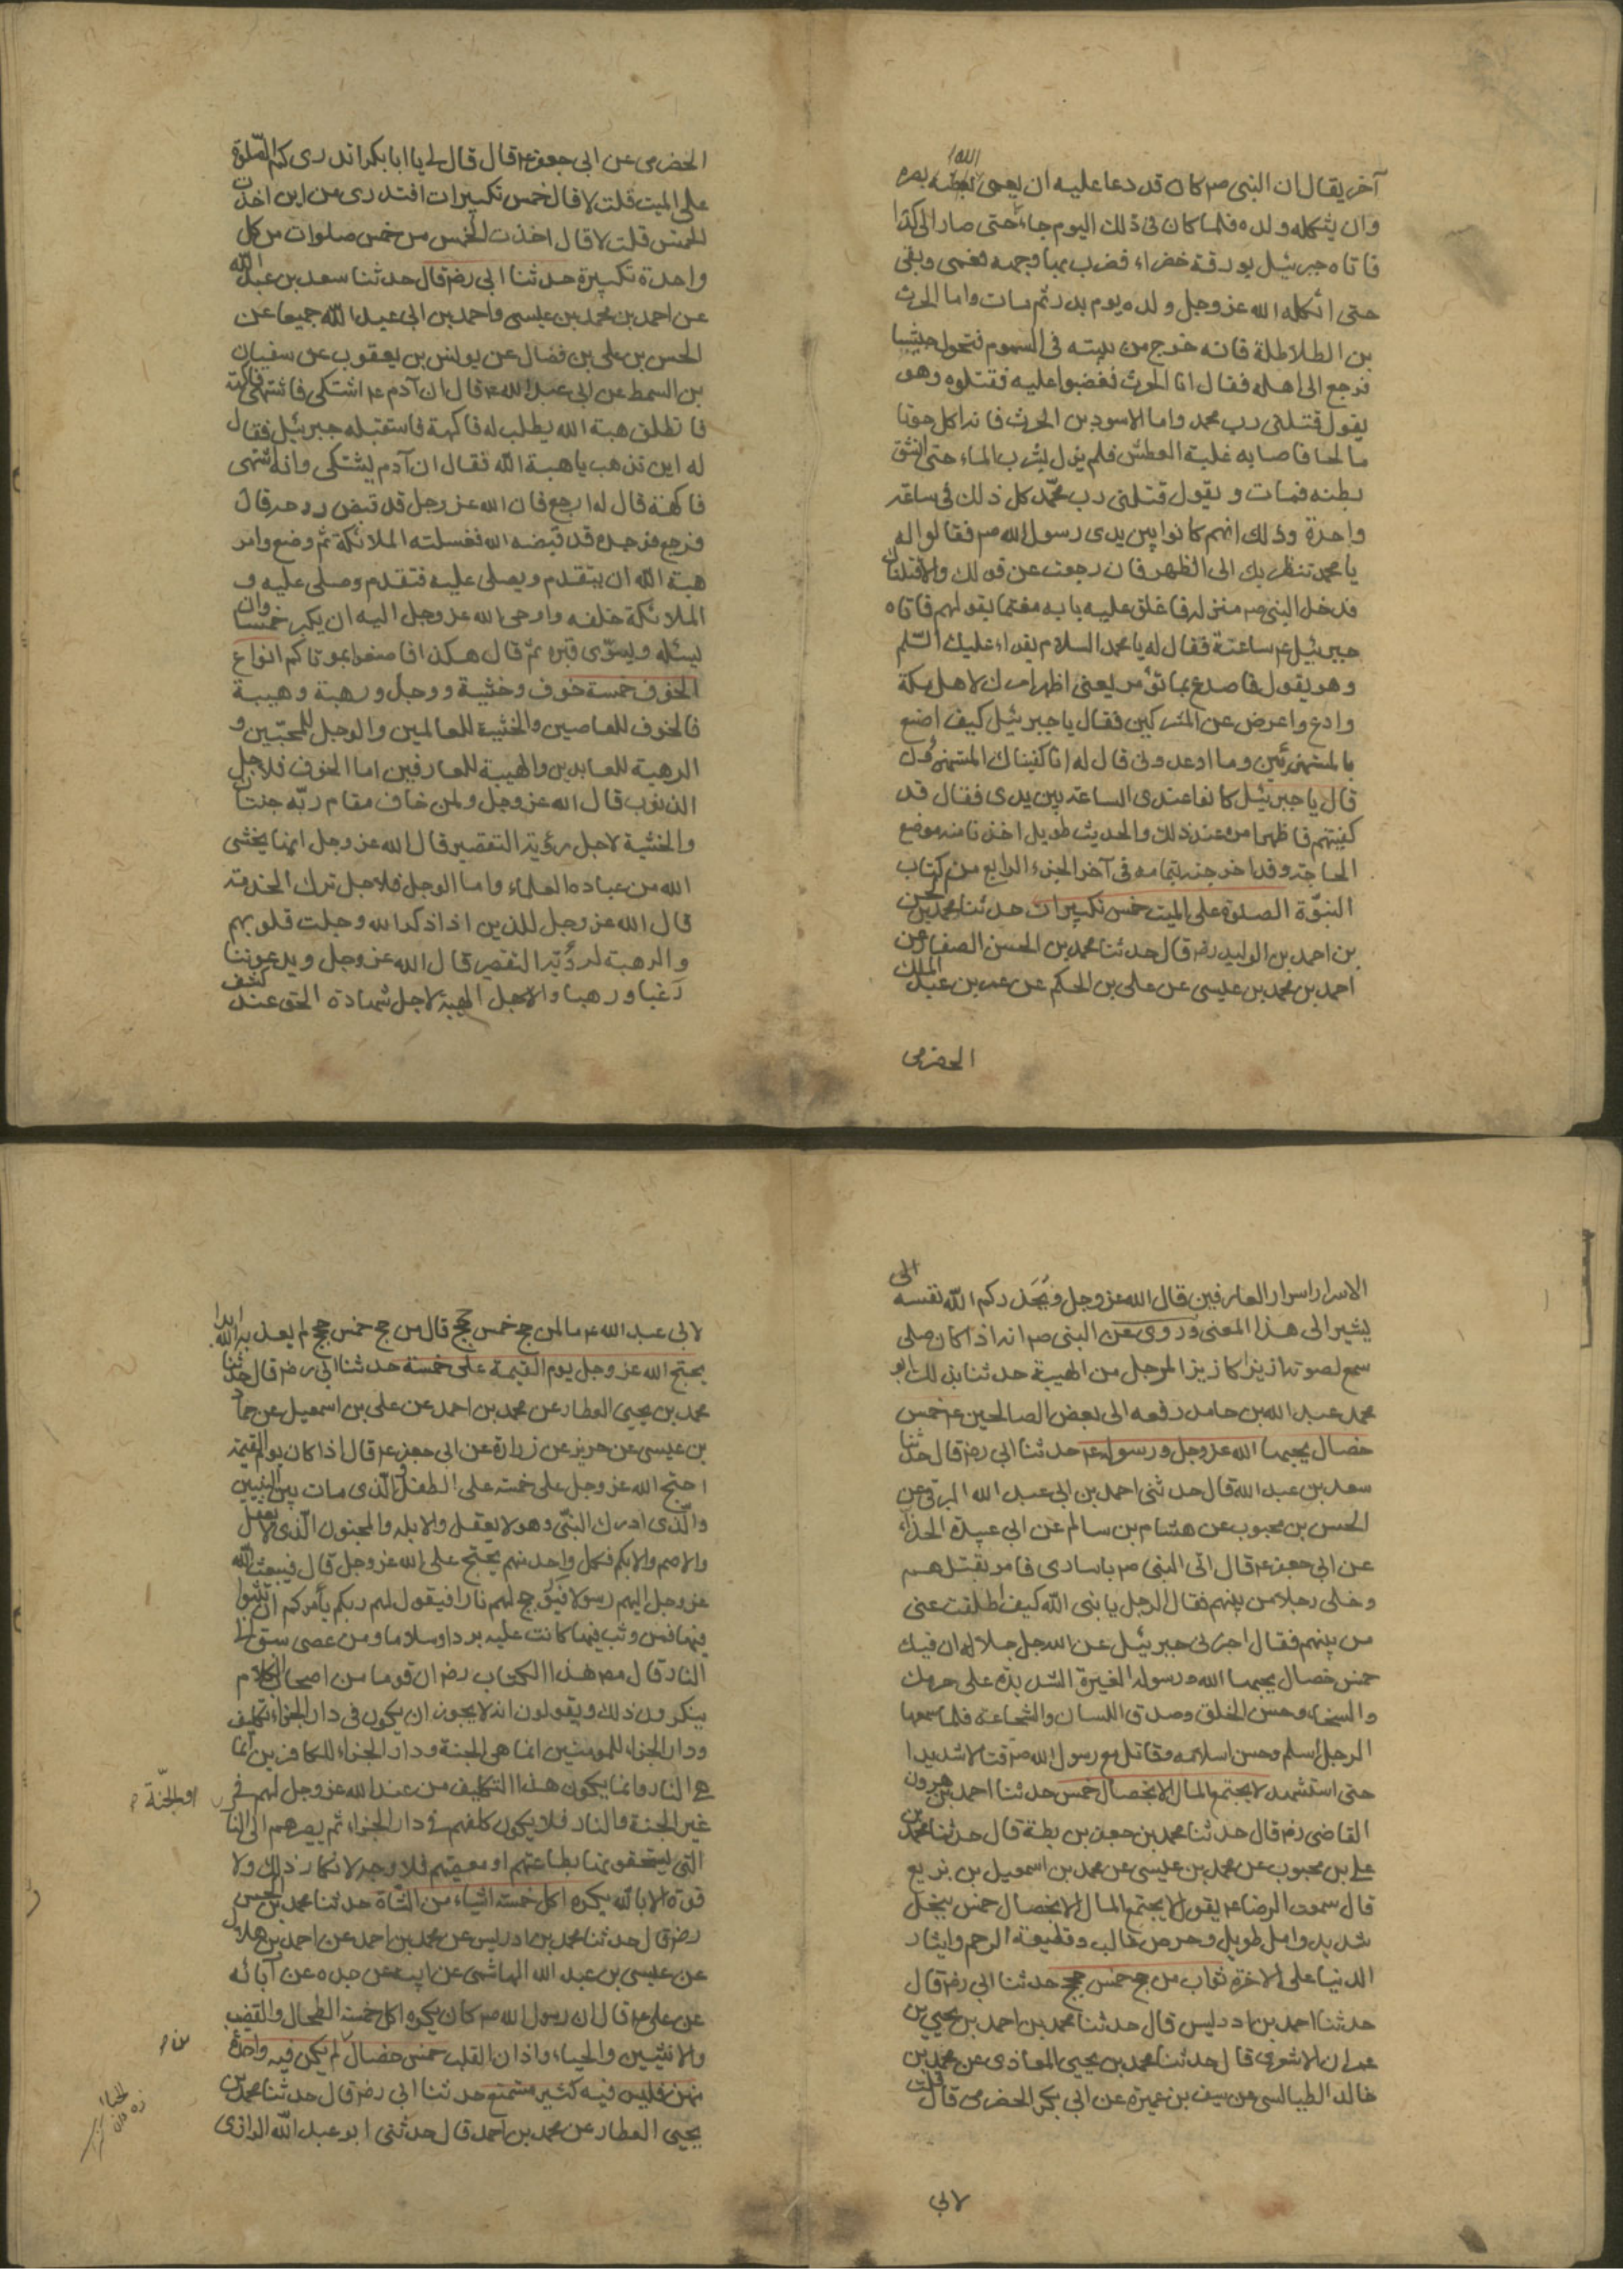 آخر يقال ان النبى ص كان قد دعا عليه ان يعمى الله بصره
وان يثكله ولده فلما كان فى ذلك اليوم جاء حتى صار الى كدا
فاتاه جبرئيل بورقة خضراء فضرب بها وجهه فعمى وبقى
حتى اثكله الله عز وجل ولده يوم بدر ثم مات واما الحرث
بن الطلاطلة فانه خرج من بيته فى السموم فتحول حبشيا
فرجع الى اهله فقال انا الحرث فغضبوا عليه فقتلوه وهو
يقول قتلنى رب محمد واما الاسود بن الحرث فانه اكل حوتا
مالحا فاصابه غلبة العطش فلم يزل يشرب الماء حتى انشق
بطنه فمات ويقول قتلنى رب محمّد كل ذلك فى ساعة
واحدة وذلك انهم كانوا بين يدى رسول الله ص فقالوا له
يا محمد تنظر بك الى الظهر فان رجعت عن قولك والا قتلناك
فدخل النبى ص منزله فاغلق عليه بابه مغتما بقولهم فاتاه
جبرئيل ع ساعته فقال له يا محمد السلام يقراء عليك السّلم
وهو يقول فاصدع بما تؤمر يعنى اظهر امرك لاهل مكة
وادع واعرض عن المشركين فقال يا جبرئيل كيف اضع
بالمستهزئين وما اوعدونى قال له انا كفيناك المستهزئين
قال يا جبرئيل كانوا عندى الساعة بين يدى فقال قد
كفيتهم فاظهر امره عند ذلك والحديث طويل اخذنا منه موضع
الحاجة وقد اخرجته بتمامه فى آخر الجزء الرابع من كتاب
النبوّة الصلوة على الميت خمس تكبيرات حدثنا محمد بن الحسن
بن احمد بن الوليد رض قال حدثنا محمد بن الحسن الصفار عن
احمد بن محمد بن عيسى عن على بن الحكم عن عن بن عبد الملك
الحضرمى
الحضرمى عن ابى جعفر ع قال قال لى يا ابا بكر اتدرى كم الصّلوة
على الميت قلت لا قال خمس تكبيرات افتدرى من اين اخذت
الخمس قلت لا قال اخذت الخمس من خمس صلوات من كل
واحدة تكبيرة حدثنا ابى رض قال حدثنا سعد بن عبد الله
عن احمد بن محمد بن عيسى واحمد بن ابى عبد الله جميعا عن
الحسن بن على بن فضال عن يونس بن يعقوب عن سفيان
بن السمط عن ابى عبد الله ع قال ان آدم ع اشتكى فاشتهى فاكهة
فانطلق هبة الله يطلب له فاكهة فاستقبله جبرئيل فقال
له اين تذهب يا هبة الله فقال ان آدم يشتكى وانه اشتهى
فاكهة قال له ارجع فان الله عز وجل قد قبض روحه قال
فرجع فوجده قد قبضه الله فغسلته الملائكة ثم وضع وامر
هبة الله ان يتقدم ويصلى عليه فتقدم وصلى عليه و
الملائكة خلفه واوحى الله عز وجل اليه ان يكبر خمسا وان
يسله ويسوّى قبره ثم قال هكذا فاصنعوا بموتاكم انواع
الخوف خمسة خوف وخشية ووجل ورهبة وهيبة
فالخوف للعاصين والخشية للعالمين والوجل للمخبتين و
الرهبة للعابدين والهيبة للعارفين اما الخوف فلاجل
الذنوب قال الله عز وجل ولمن خاف مقام ربّه جنتان
والخشية لاجل رؤية التقصير قال الله عز وجل انما يخشى
الله من عباده العلماء واما الوجل فلاجل ترك الخدمة
قال الله عز وجل للذين اذا ذكر الله وجلت قلوبهم
والرهبة لرؤية التقصير قال الله عز وجل ويدعوننا
رغبا ورهبا والاجل الهيبة لاجل شهادة الحق عند كشف
الاسرار اسرار العارفين قال الله عز وجل ويُحَذّركم الله نفسه الى
يشير الى هذا المعنى وروى عن النبى ص انه اذا كان صلى
سمع لصوته ازيزا كازيز المرجل من الهيبة حدثنا بذلك ابو
محمد عبد الله بن حامد رفعه الى بعض الصالحين ع خمس
خصال يحبها الله عز وجل ورسوله ع حدثنا ابى رض قال حدثنا
سعد بن عبد الله قال حدثنى احمد بن ابى عبد الله البرقى عن
الحسن بن محبوب عن هشام بن سالم عن ابى عبيدة الحذاء
عن ابى جعفر ع قال اتى النبى ص باسارى فامر بقتلهم
وخلى رجلا من بينهم فقال الرجل يا نبى الله كيف اطلقت عنى
من بينهم فقال اخبرنى جبرئيل عن الله جل جلاله ان فيك
خمس خصال يحبها الله ورسوله الغيرة الشديدة على حرمك
والسخاء وحسن الخلق وصدق اللسان والشجاعة فلما سمعها
الرجل اسلم وحسن اسلامه وقاتل مع رسول الله ص قتالا شديدا
حتى استشهد لا يجتمع المال الا بخصال خمس حدثنا احمد بن هرون
القاضى رض قال حدثنا محمد بن جعفر بن بطة قال حدثنا محمد بن
على بن محبوب عن محمد بن عيسى عن محمد بن اسمعيل بن بزيع
قال سمعت الرضا ع يقول لا يجتمع المال الا بخصال خمس ببخل
شديد وامل طويل وحرص غالب وقطيعة الرحم وايثار
الدنيا على الاخرة ثواب من حج خمس حجج حدثنا ابى رض قال
حدثنا احمد بن ادريس قال حدثنا محمد بن احمد بن يحيى بن
عمران الاشعرى قال حدثنا محمد بن يحيى المعاذى عن محمد بن
خالد الطيالسى عن سيف بن عميرة عن ابى بكر الحضرمى قال قلت
لابى
لابى عبد الله ع ما لمن حج خمس حجج قال من حج خمس حجج لم يعذبه الله ابدا
يحتج الله عز وجل يوم القيمة على خمسة حدثنا ابى رض قال حدثنا
محمد بن يحيى العطار عن محمد بن احمد عن على بن اسمعيل عن حماد
بن عيسى عن حريز عن زرارة عن ابى جعفر ع قال اذا كان يوم القيمة
احتج الله عز وجل على خمسة على الطفل والّذى مات بين النبيين
والّذى ادرك النبىّ وهو لا يعقل والابله والمجنون الّذى لا يعقل
والاصم والابكم فكل واحد منهم يحتج على الله عز وجل قال فيبعث الله
عز وجل اليهم رسولا فيؤجج لهم نارا فيقول لهم ربكم يأمركم ان تثبوا
فيها فمن وثب فيها كانت عليه بردا وسلاما ومن عصى سيق الى
النار قال مص هذا الكتاب رض ان قوما من اصحاب الكلام
ينكرون ذلك ويقولون انه لا يجوز ان يكون فى دار الجزاء تكليف
ودار الجزاء للمومنين انما هى الجنة ودار الجزاء للكافرين انّما
هى النار وانما يكون هذا التكليف من عند الله عز وجل لهم فى
غير الجنة والنار فلا يكون كلفهم فى دار الجزاء ثم يصيرهم الى النا
التى يستحقونها بطاعتهم او معصيتهم فلا وجه لانكار ذلك ولا
قوة الا بالله يكره اكل خمسة اشياء من الشاة حدثنا محمد بن الحسن
رض قال حدثنا محمد بن ادريس عن محمد بن احمد عن احمد بن هلال
عن عيسى بن عبد الله الهاشمى عن ابيه عن جده عن آبائه
عن على ع قال ان رسول الله ص كان يكره اكل خمسة الطحال والقضيب
والانثيين والحياء واذان القلب خمس خصال لم يكن فيه واحدة
منهن فليس فيه كثير مستمتع حدثنا ابى رض قال حدثنا محمد بن
يحيى العطار عن محمد بن احمد قال حدثنى ابو عبد الله الرازى
او الجنّة
من